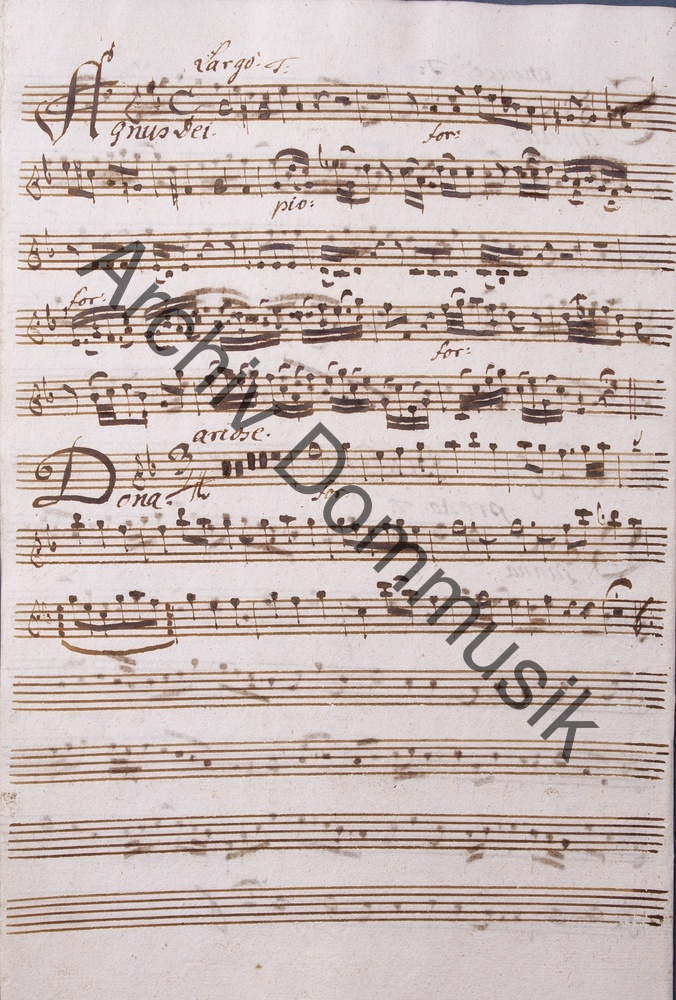 Largo. T.
Agnus Dei.
for:
pio:
for:
for:
Dona.
for
Archiv Dommusik